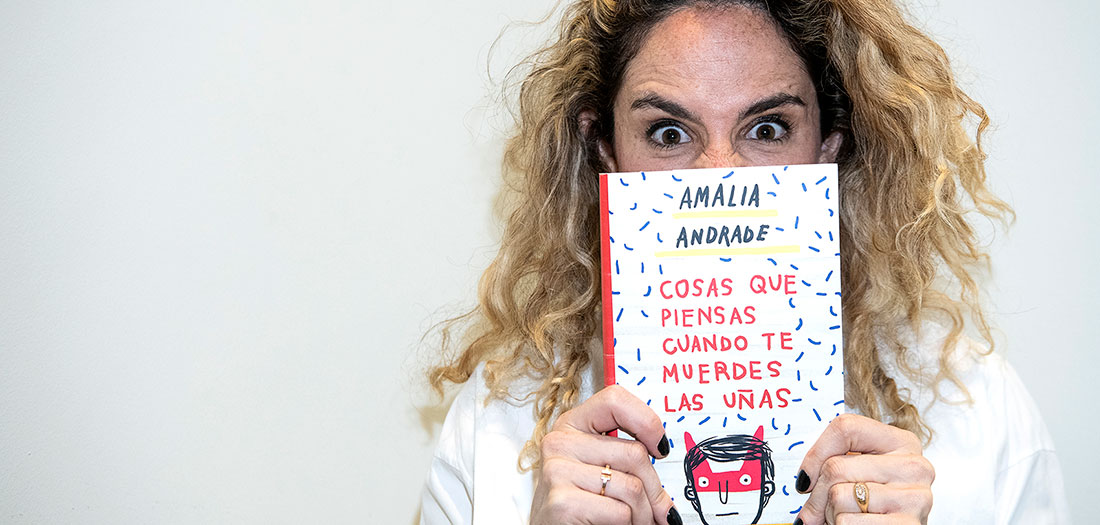 AMALIA
ANDRADE
COSAS QUE
PIENSAS
CUANDO TE
MUERDES
LAS UÑAS